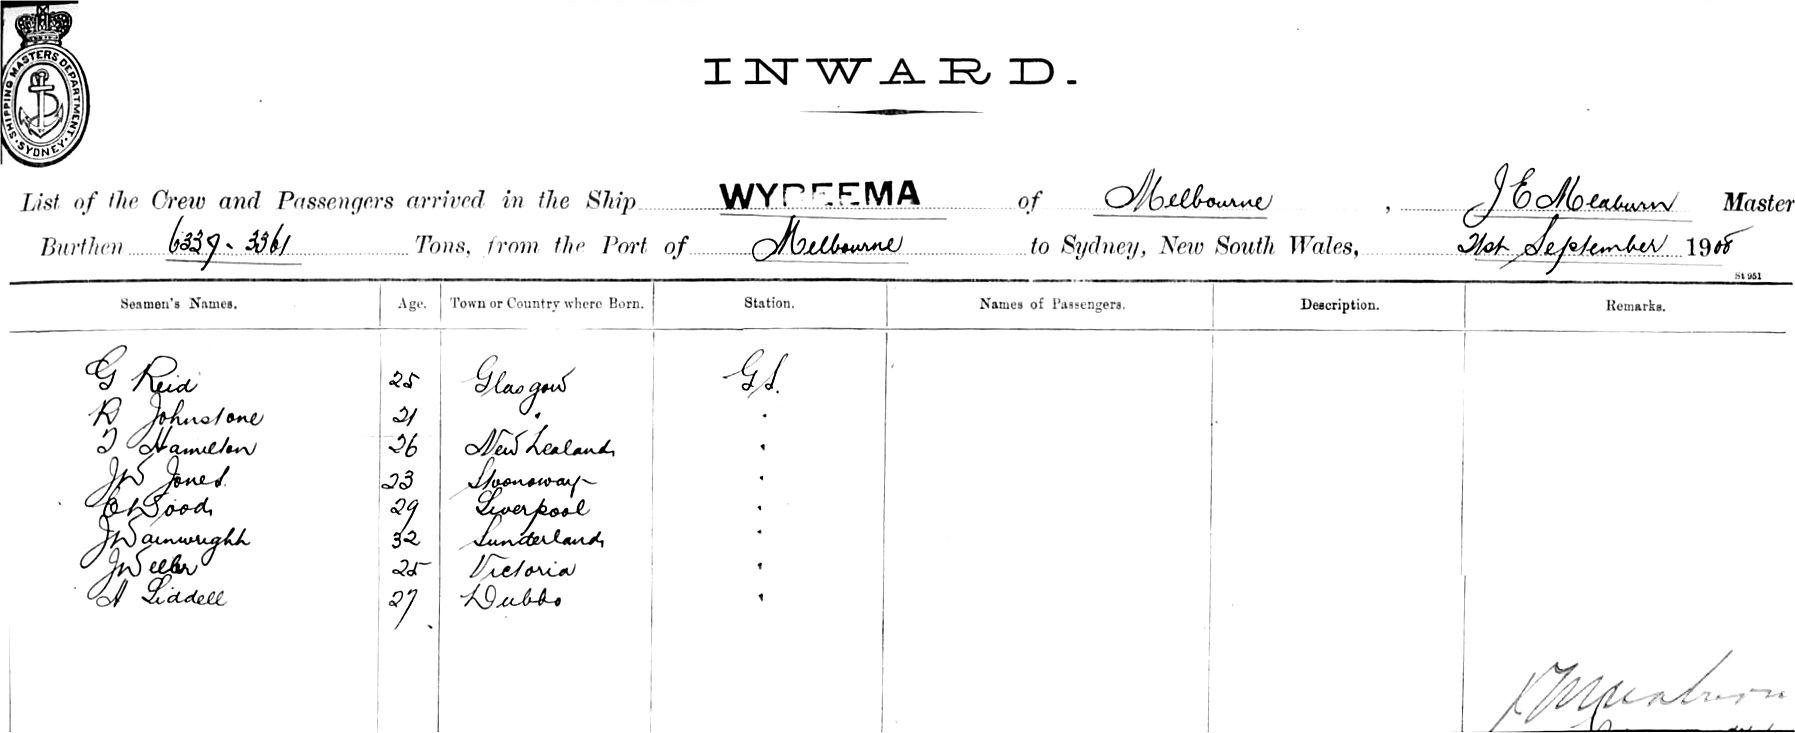 SHIPPING MASTERS DEPARTMENT. SYDNEY.
INWARD.
List of the Crew and Passengers arrived in the Ship WYREEMA of Melbourne, J E Meaburn Master
Burthen 6339-3361 Tons, from the Port of Melbourne to Sydney, New South Wales, 21st September 1908
St 951
Seamen's Names. Age. Town or Country where Born. Station. Names of Passengers. Description. Remarks.
G Reid 25 Glasgow G S.
R Johnstone 21 "
T Hamilton 26 New Zealand "
J W Jones. 23 Stornoway "
E Wood 29 Liverpool "
J Wainwright 32 Sunderland "
J Weller 25 Victoria "
A Liddell 27 Dubbo "